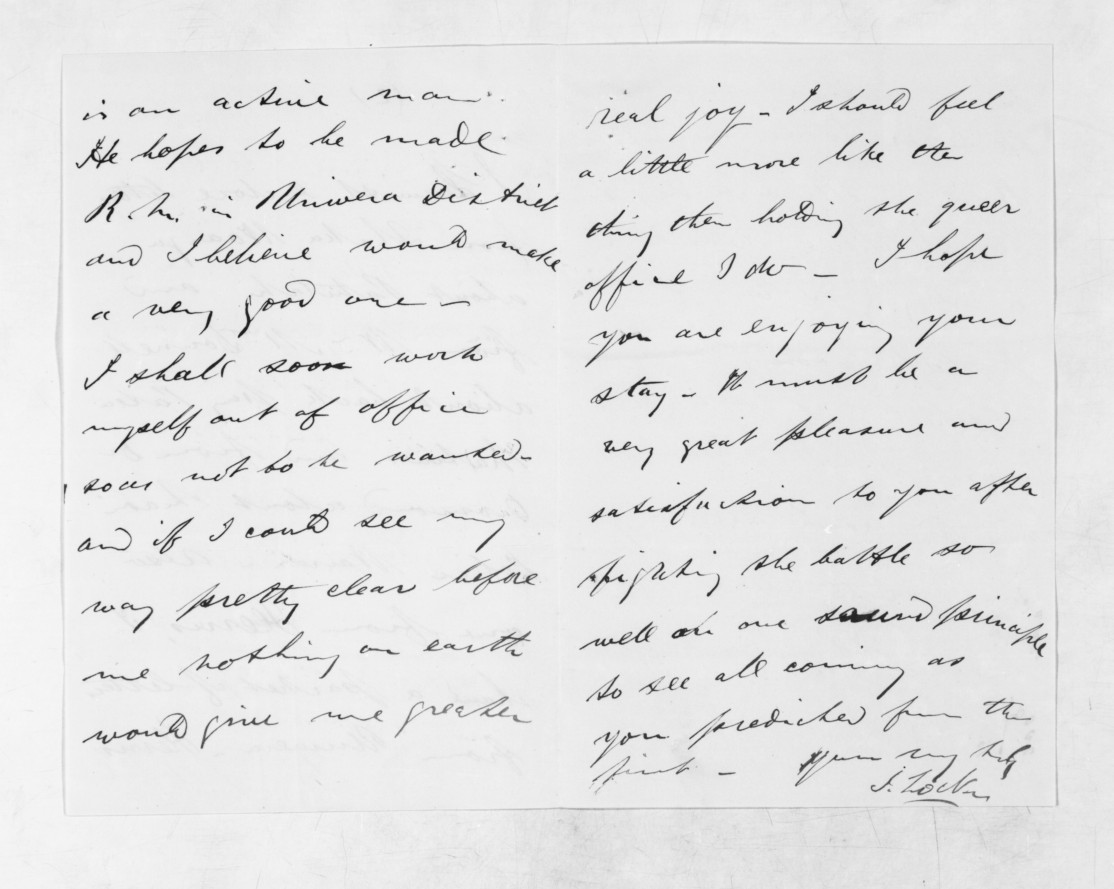 is an active man.
He hopes to be made
R. M. in Wairoa District
and I believe would make
a very good one –
I shall soon work
myself out of office
so as not to be wanted –
and if I could see my
way pretty clear before
me nothing on earth
would give me greater
real joy – I should feel
a little more like the
thing then holding the queer
office I do – I hope
you are enjoying your
stay – It must be a
very great pleasure and
satisfaction to you after
fighting the battle so
well on one sound principle
to see all coming as
you predicted from the
first – Yours very truly
J. Locke